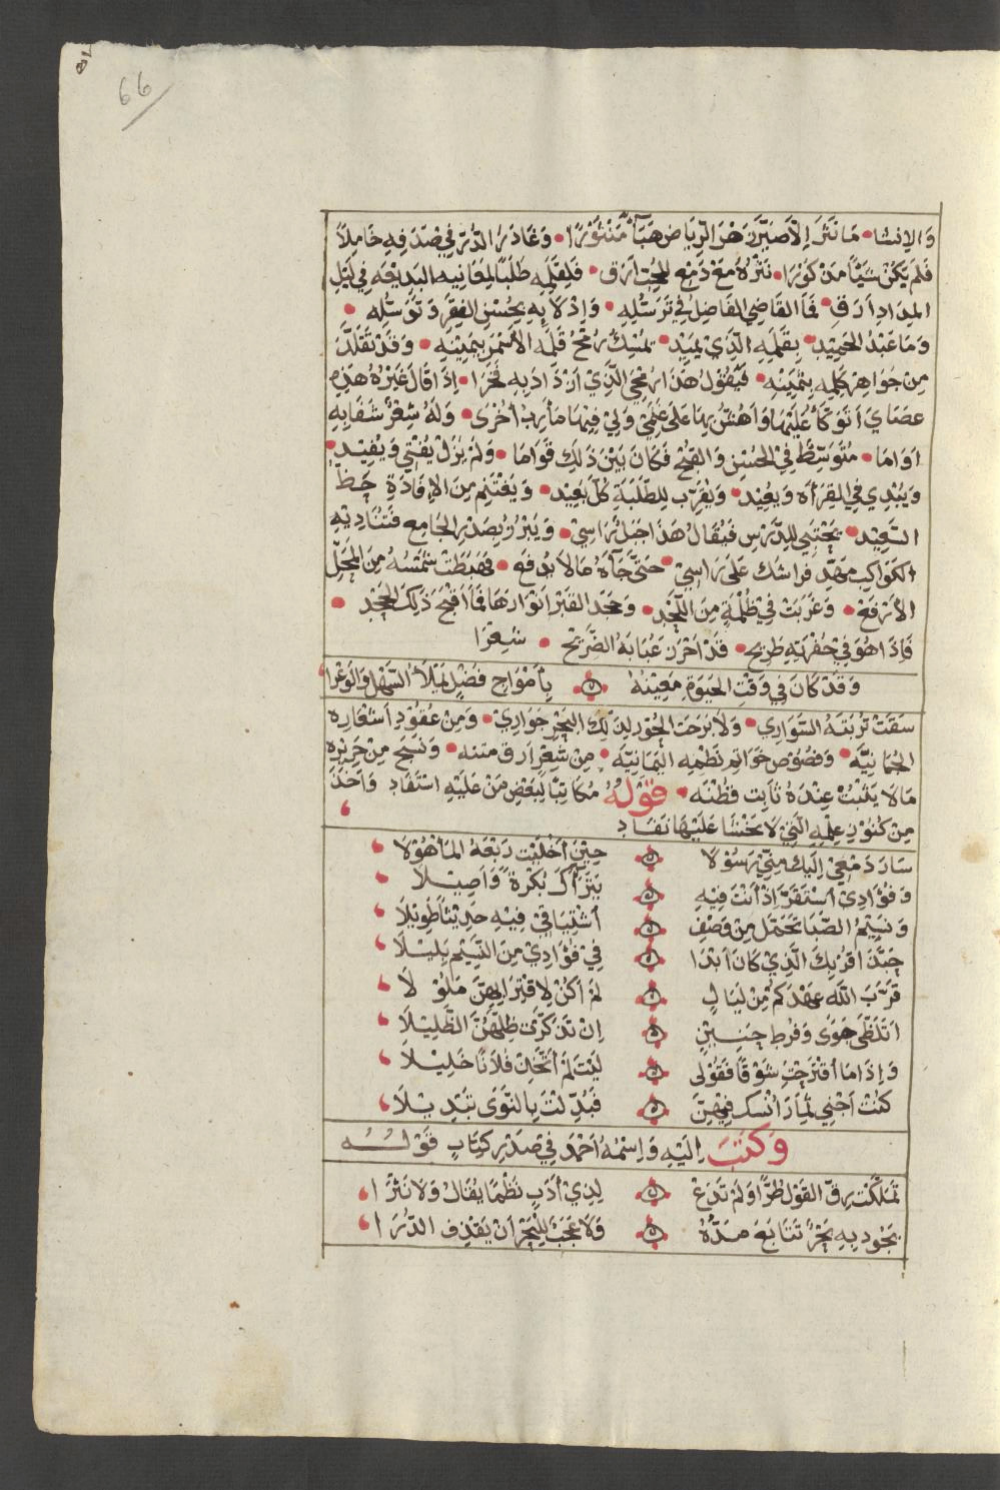 66
والإنشا • ما نثر إلا صير زهر الرياض هبآء منثورا • وغادر الدر في صدفه خاملا
فلم يكن شيئا مذكورا • نثره مع دمع المحب أرق • فلقلمه طلبا لمعانيه البديعه في ليل
المداد أرق • فما القاضي الفاضل في ترسله • وإدلابه بحسن الفقر وتوسله •
وما عبد الحميد • بقلمه الذي يميد • يمسك رمح قلمه الأسمر بيمينه • وقد تقلد
من جواهر كلمه بثمينه • فيقول هذا رمحي الذي ازداد به فخرا • إذا قال غيره هذه
عصاي أتوكأ عليها وأهش بها على غنمي ولي فيها مآرب أخرى • وله شعر شفا به
اواما • متوسط في الحسن والقبح فكان بين ذلك قواما • ولم يزل يفتي ويفيد •
ويبدي في القراه ويعيد • ويقرب للطلبة كل بعيد • ويغتنم من الإفادة حظ
السعيد • يجتبي للدرس فيقال هذا جبل راسي • ويبرز بصدر الجامع فتناديه
الكواكب مهد فراشك على راسي • حتى جآه مالا يدفع • فهبطت شمسه من المحل
الأرفع • وغربت في ظلمة من اللحد • وجحد القبر انوارها فما اقبح ذلك الجحد •
فإذا هو في حفرته طريح • قد أحرز عبابه الضريح • شعرا
وقد كان في وقت الحيوة معينه بأمواج فضل يملأ السهل والوعرا
سقت تربته السواري • ولا برحت الحور لذلك البحر جواري • ومن عقود أشعاره
الجمانيه • وفصوص خواتم نظمه اليمانيه • من شعر ارق متنه • ونسج من حريره
مالا يثبت عنده ثابت قطنه • قوله مكاتبا لبعض من عليه استفاد وأخذ
من كنوز علمه التي لا يخشا عليها نفاد
سار دمعي إليك مني رسولا حين أخليت ربعه المأهولا
وفؤادي استقر إذ أنت فيه بتراك بكرة وأصيلا
ونسيم الصبا تحمل من وصف أشتياقي فيه حديثا طويلا
حبذا قربك الذي كان أبدا في فؤادي من النسيم بليلا
قرب الله عهدكم من ليال لم أكن لاقترابهن ملولا
اتلظى جوى وفرط حنين إن تذكرت ظلهن الظليلا
وإذا ما أقترحت شوقا فقولى ليت لم أتخذ فلانا خليلا
كنت أجني ثمار أنسك فيهن فبدلت بالنوى تبديلا
وكتب إليه واسمه احمد في صدر كتاب قوله
تملكت رق القول طرا ولم تدع لذي أدب نظما يقال ولا نثرا
يجود به بحر تتابع مده ولا عجب للبحر أن يقذف الدرا